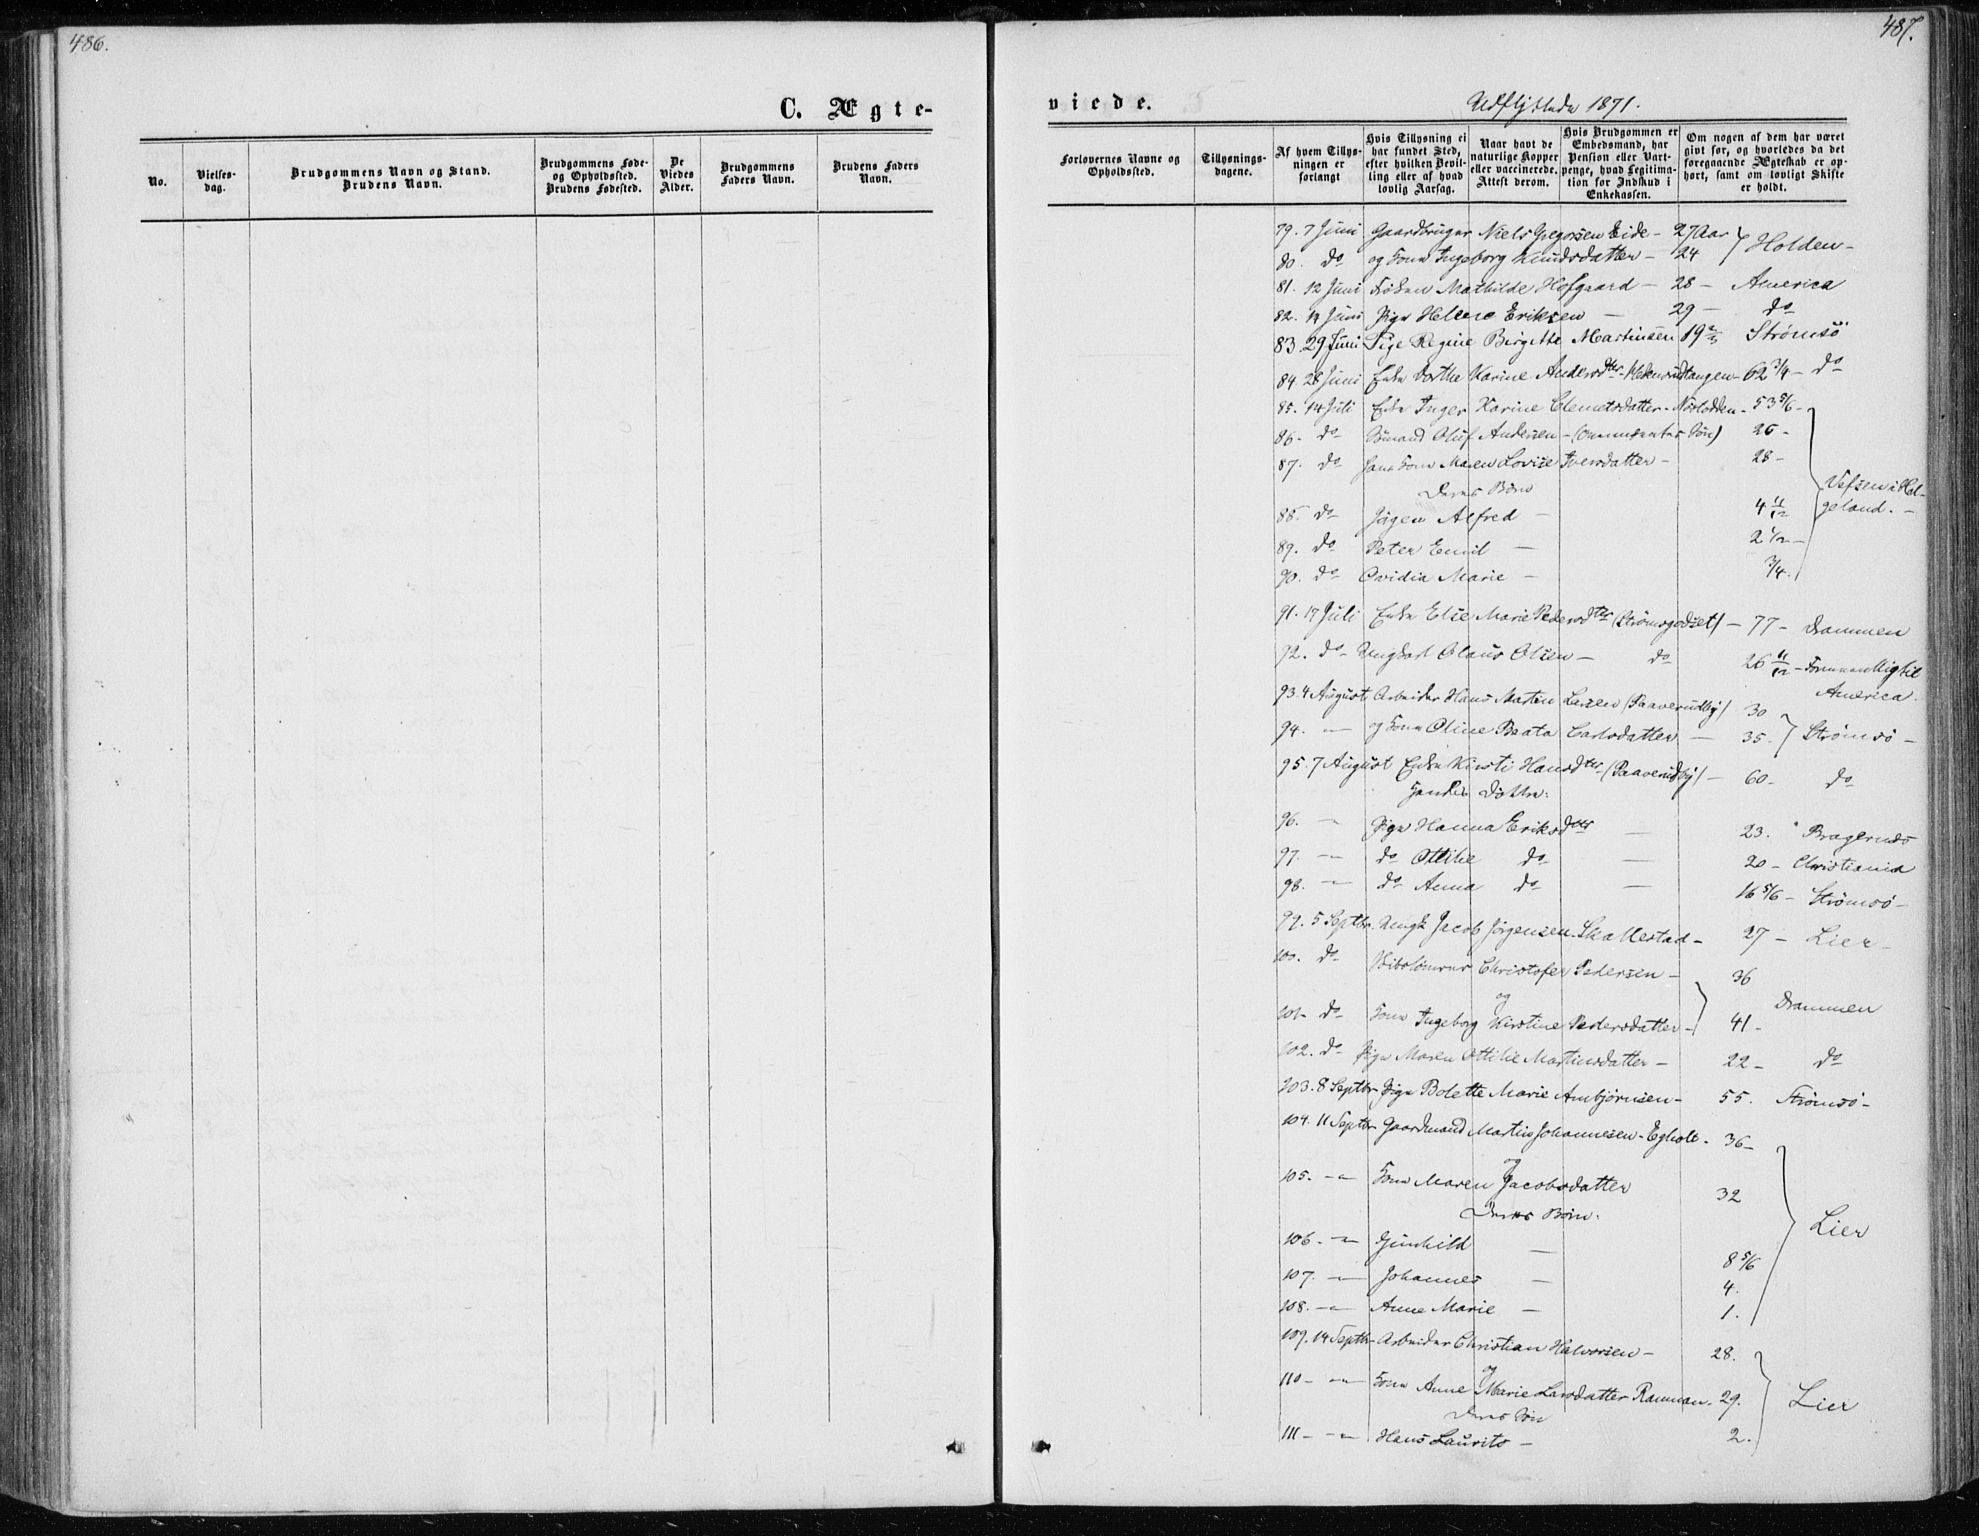 486.
C. Ægte-
No.
Vielses-
dag.
Brudgommens Navn og Stand.
Brudens Navn.
Brudgommens Føde-
og Opholdssted.
Brudens Fødested.
De
Viedes
Alder.
Brudgommens
Faders Navn.
Brudens Faders
Navn.
487.
viede.
Udflyttede 1871.
Forlovernes Navne og
Opholdssted.
Tillysnings-
dagene.
Af hvem Tillys-
ningen er
forlangt
Hvis Tillysning ei
har fundet Sted,
efter hvilken Bevil-
ling eller af hvad
lovlig Aarsag.
Naar havt de
naturlige Kopper
eller vaccinerede.
Attest derom.
Hvis Brudgommen er
Embedsmand, har
Pension eller Vart-
penge, hvad Legitima-
tion for Indskud i
Enkekassen.
Om nogen af dem har været
givt før, og hvorledes da det
foregaaende Ægteskab er op-
hørt, samt om lovligt Skifte
er holdt.
79. 7 Juni Gaardbruger Niels Gregorsen Eide - 27 Aar
80. do og Kone Ingeborg Knudsdatter - 24 Holden -
81. 12 Juni Frøken Mathilde Hofgaard - 28 - America
82. 14 Juni Pige Helene Eriksen - 29 - do
83. 29 Juni Pige Regine Birgitte Martinsen 19 2/3 Strømsö
84. 28 Juni Enke Dorthe Karine Andersdter 62 3/4 - do
85. 14 Juli Enke Inger Karine Clemetsdatter - 53 5/6 -
86 - do Sömand Oluf Andersen - Søn) 26 -
87. do hans Kone Maren Lovise Iversdatter - 28 -
Deres Børn
Vefsen i Hel-
geland. -
88. do Jörgen Alfred - 4 11/12
89. do Peter Emil - 2 1/2 -
90. do Ovidia Marie - 3/4.
91. 17 Juli Enke Else Marie Pedersdter (Strömsgodset) - 77 - Drammen
92. do - Ungkarl Olaus Olsen - do 26 11/12 - til
America.
93. 4 August Arbeider Hans Martin Larsen (Paaverudby) 30
94. - og Kone Oline Beata Carlsdatter - 35. Strømsö -
95. 7 August Enke Kirsti Hansdter (Paaverudby) - 60 - do
Døttre:
96. - Pige Hanna Eriksdter - 23. Bragernæs
97. - do Ottilie do - 20 - Christiania
98. - do Anna do - 16 5/6 - Strømsö -
99. 5 Septbr. Ungk Jacob Jörgensen Skallestad - 27 - Lier -
100. do Christofer Pedersen - 36
og
Drammen
101 - do Kone Ingeborg Kirstine Pedersdatter - 41 -
102. do Pige Maren Ottilie Martinsdatter - 22 - do
103. 8 Septbr Pige Bolette Marie Ambjørnsen - 55. Strømsö -
104. 11 Septbr Gaardmand Martin Johannesen - Egholt - 36 -
og
105. - Kone Maren Jacobsdatter 32
Deres Børn:
Lier
106. - Gunhild - 8 5/6
107. - Johannes - 4.
108. - Anne Marie - 1.
109. 14 Septbr Arbeider Christian Halvorsen - 28.
og
110 - Kone Anne Marie Larsdatter 29. Lier
Deres Søn
111 - Hans Laurits - 2.